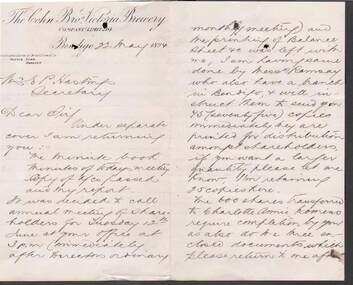 The Cohn Bros Victoria Brewery
COMPANY LIMITED
Bendigo, 22 May 1894
Secretary
Dear Sir
Under separate
cover I am returning
you :-
The minute book
minutes of today meeting
and my report
It was decided to call
annual meeting of share
holders for Tuesday 12
June at your office at
3 pm immediately
after Directors ordinary
monthly meeting, and
the printing of Balance
Sheet &c was left with
me, I am having same
done by Messrs Ramsay
who also have a branch
in Bendigo, & will in
struct them to send you
75 (seventy five) copies
immediately they are
printed for distribution
amongst shareholders
if you want a larger
quantity please let me
know. I'm retaining
25 copies here.
The 600 shares transferred
to Charlotte Annie
require completion by you
as also do the three en-
closed documents which
please return to me after